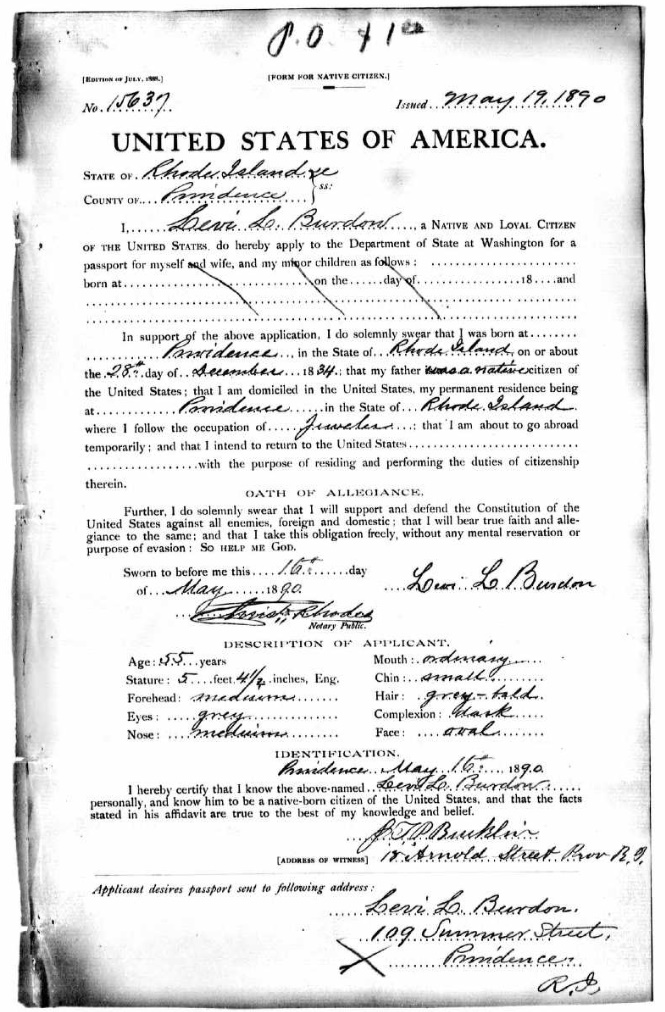 [EDITION OF JULY, 1888.]
[FORM FOR NATIVE CITIZEN.]
No. 15637. Issued May 19, 1890
UNITED STATES OF AMERICA.
STATE OF Rhode Island
COUNTY OF Providence } ss:
I, Levi L. Burdon, a NATIVE AND LOYAL CITIZEN
OF THE UNITED STATES, do hereby apply to the Department of State at Washington for a
passport for myself and wife, and my minor children as follows:
born at on the day of 18 and
In support of the above application, I do solemnly swear that I was born at
Providence, in the State of Rhode Island, on or about
the 28th day of December 1834; that my father was a native citizen of
the United States; that I am domiciled in the United States, my permanent residence being
at Providence in the State of Rhode Island
where I follow the occupation of Jeweler; that I am about to go abroad
temporarily; and that I intend to return to the United States
with the purpose of residing and performing the duties of citizenship
therein.
OATH OF ALLEGIANCE.
Further, I do solemnly swear that I will support and defend the Constitution of the
United States against all enemies, foreign and domestic; that I will bear true faith and alle-
giance to the same; and that I take this obligation freely, without any mental reservation or
purpose of evasion: SO HELP ME GOD.
Sworn to before me this 16th day
of May 1890. Levi L Burdon
Rhodes
Notary Public.
DESCRIPTION OF APPLICANT.
Age: 55 years Mouth: ordinary
Stature: 5 feet 4 1/2 inches, Eng. Chin: small
Forehead: medium Hair: grey - bald
Eyes: grey Complexion: dark
Nose: medium Face: oval
IDENTIFICATION.
Providence May 16th 1890.
I hereby certify that I know the above-named Levi L. Burdon
personally, and know him to be a native-born citizen of the United States, and that the facts
stated in his affidavit are true to the best of my knowledge and belief.
Bucklin
[ADDRESS OF WITNESS] Arnold Street Prov R.I.
Applicant desires passport sent to following address:
Levi L. Burdon.
109 Summer Street,
Providence,
R.I.